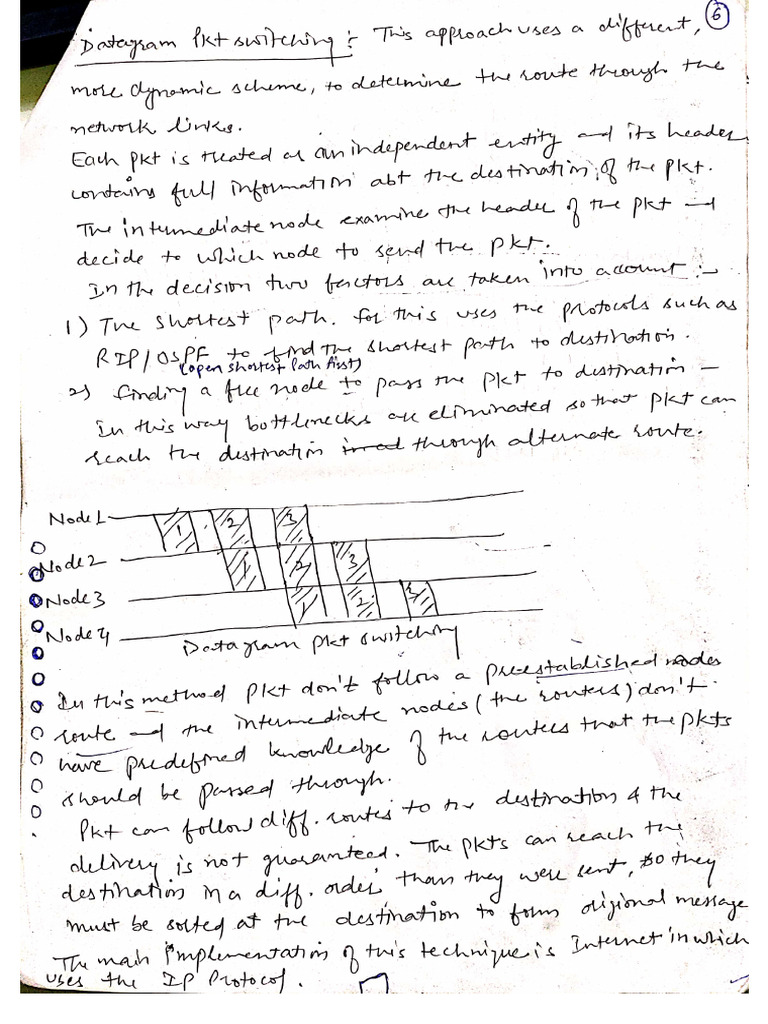 6
Datagram Pkt switching :- This approach uses a different,
more dynamic scheme, to determine the route through the
network links.
Each pkt is treated as an independent entity and its header
contains full information abt the destination, of the pkt.
The intermediate node examine the header of the pkt and
decide to which node to send the pkt.
In the decision two factors are taken into account :-
1) The shortest path. for this uses the protocols such as
RIP/OSPF to find the shortest path to destination.
(open shortest Path first)
2) finding a free node to pass the pkt to destination -
In this way bottlenecks are eliminated so that pkt can
reach the destination through alternate route.
Node 1
1 2 3
Node 2
1 2 3
Node 3
1 2 3
Node 4
Datagram pkt switching
In this method pkt don't follow a pre-established nodes
route and the intermediate nodes (the routers) don't
have predefined knowledge of the routees that the pkts
should be passed through.
Pkt can follow diff. routes to the destination & the
delivery is not guaranteed. The pkts can reach the
destination in a diff. order than they were sent, so they
must be sorted at the destination to form origional message
The main implementation of this technique is Internet in which
uses the IP Protocol.